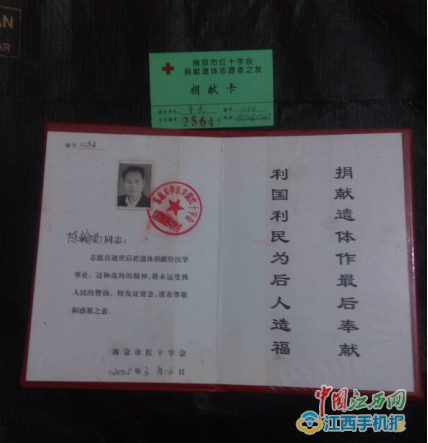 AR
南京市红十字会
捐献遗体志愿者之友
捐献卡
2564
编号
同志:
志愿在逝世后把遗体捐献给医学
事业。这种高尚的精神,将永远受到
人民的赞扬。特发证留念,谨表尊敬
和感谢之意。
南京市红十字会
2005年3月16日
捐献遗体作最后奉献
利国利民为后人造福
中国江西网
江西手机报